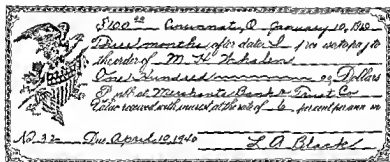 $100 00 Cincinnati, O. January 10, 1940
Three months after date I promise to pay to
the order of M. H. Whalen
One Hundred no/00 Dollars
payable at Merchants Bank & Trust Co
Value received with interest at the rate of 6 percent per annum
No. 32 Due April 10, 1940 L. A. Black